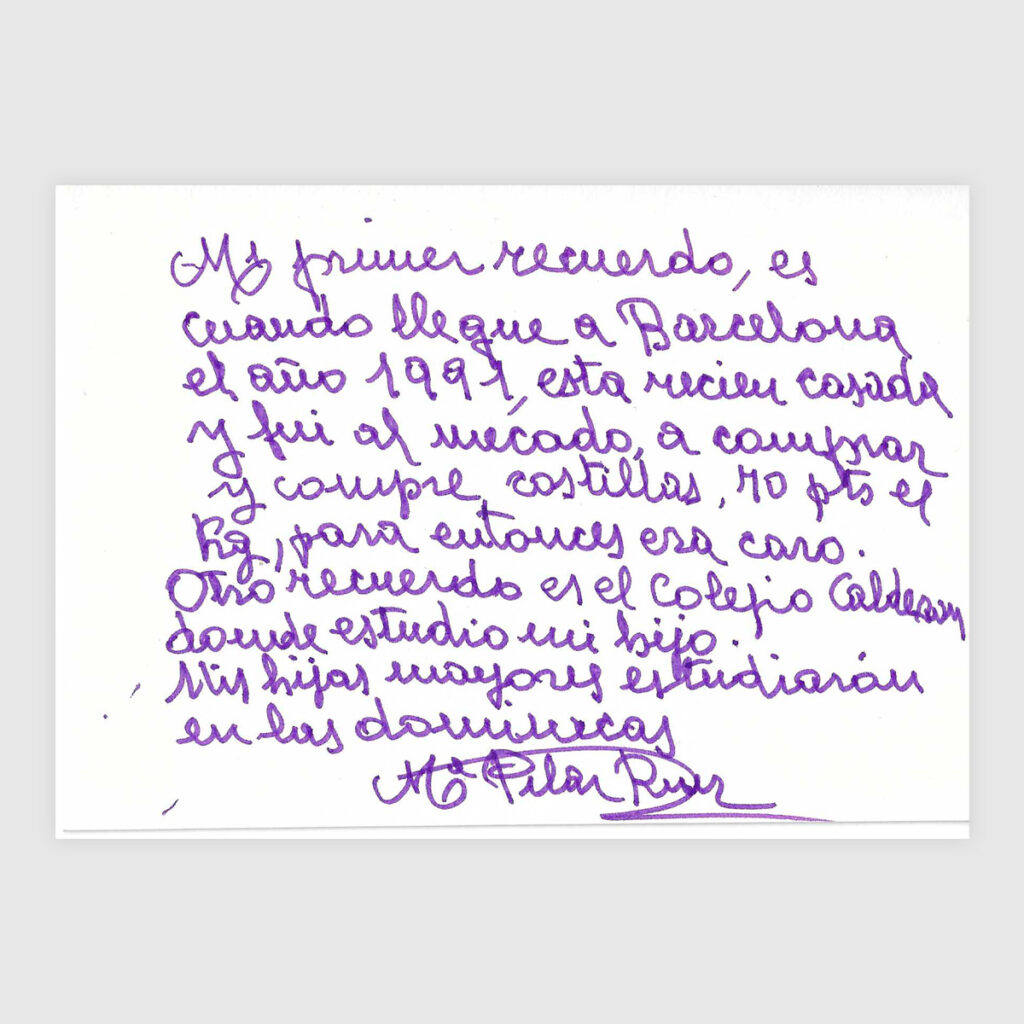 Mi primer recuerdo, es
cuando llegue a Barcelona
el año 1991, esta recien casada
y fui al mecado, a comprar
y compre costillas, 70 pts el
Kg, para entonces era caro.
Otro recuerdo es el Colegio Calderon
donde estudio mi hijo.
Mis hijas mayores estudiarón
en las dominicas
Mª Pilar Ruiz